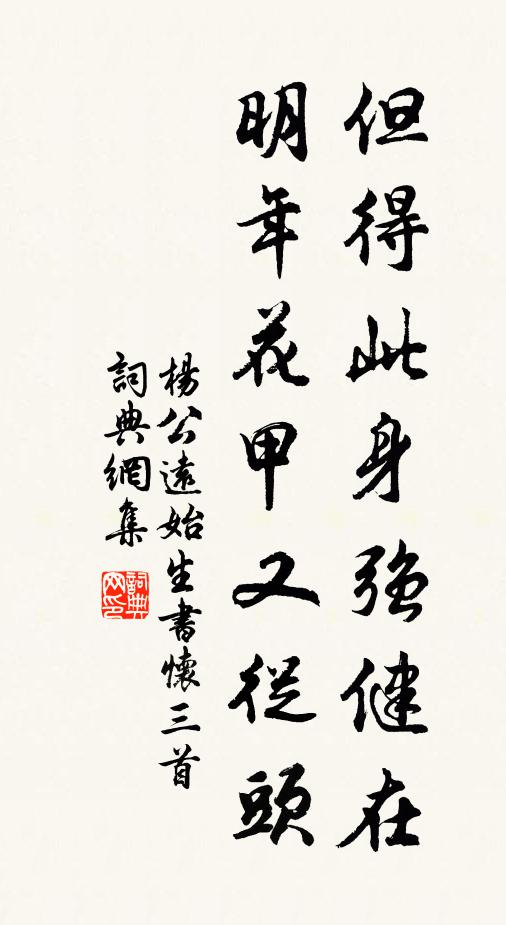 但得此身強健在
明年花甲又從頭
楊公遠始生書懷三首
詞典網集
詞典网印